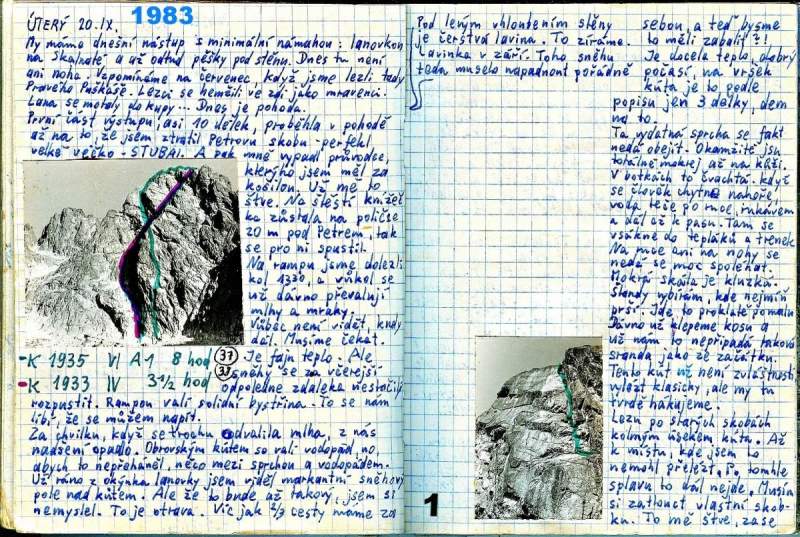 ÚTERÝ 20.IX. 1983
My máme dnešní nástup s minimální námahou: lanovkou
na Skalnaté a už odtud pěšky pod stěnu. Dnes tu není
ani noha. Vzpomínáme na červenec, když jsme lezli tady
Pravého Puškáše. Lezci se hemžili ve zdi jako mravenci.
Lana se motaly do kupy... Dnes je pohoda.
První část výstupu, asi 10 délek, proběhla v pohodě
až na to, že jsem ztratil Petrovu skobu - perfekt,
velké véčko - STUBAI. A pak mně vypadl průvodce,
kterýho jsem měl za
košilou. Už mě to
štve. Na štěstí knížeč
ka zůstala na poličce
20 m pod Petrem, tak
se pro ni spustil.
Na rampu jsme dolezli
kol 1330, a vůkol se
už dávno převalují
mlhy a mraky.
Vůbec není vidět, kudy
dál. Musíme čekat.
Je fajn teplo. Ale
sněhy se za včerejší
odpoledne zdaleka nestačily
- K 1935 VI A1 8 hod 37
- K 1933 IV 3 1/2 hod
rozpustit. Rampou valí solidní bystřina. To se nám
líbí, že se můžem napít.
Za chvilku, když se trochu odvalila mlha, z nás
nadšení opadlo. Obrovským kútem se valí vodopád, no,
abych to nepřeháněl, něco mezi sprchou a vodopádem.
Už ráno z okýnka lanovky jsem viděl markantní sněhový
pole nad kútem. Ale že to bude až takový, jsem si
nemyslel. To je otrava. Víc jak 2/3 cesty máme za
Pod levým vhloubením stěny
je čerstvá lavina. To zíráme.
Lavinka v září. Toho sněhu
teda muselo napadnout pořádně
sebou, a teď bysme
to měli zabalit?!
Je docela teplo, dobrý
počasí, na vršek
kúta je to podle
popisu jen 3 délky, dem
na to.
Ta vydatná sprcha se fakt
nedá obejít. Okamžitě jsu
totálně mokrej až na kůži.
V botkách to čvachtá. Když
se člověk chytne nahoře,
voda teče po ruce, rukávem
a dál až k pasu. Tam se
vsákne do tepláků a trenek
Na ruce ani na nohy se
nedá se moc spoléhat.
Mokrá skála je kluzká.
Štandy vybírám, kde nejmíň
prší. Jde to proklatě pomalu
Dávno už klepeme kosu a
už nám to nepřipadá taková
sranda jako ze začátku.
Tento kút už není zvláštností
vylézt klasicky, ale my tu
tvrdě hákujeme.
Lezu po starých skobách
kolmým úsekem kúta. Až
k místu, kde jsem to
nemohl přelézt,
splavu to dál nejde. Musím
si zatlouct vlastní skob-
ku. To mě štve, zase
1